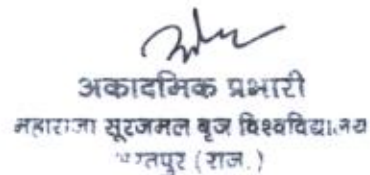 अकादमिक प्रभारी
महाराजा सूरजमल बृज विश्वविद्यालय
(राज.)